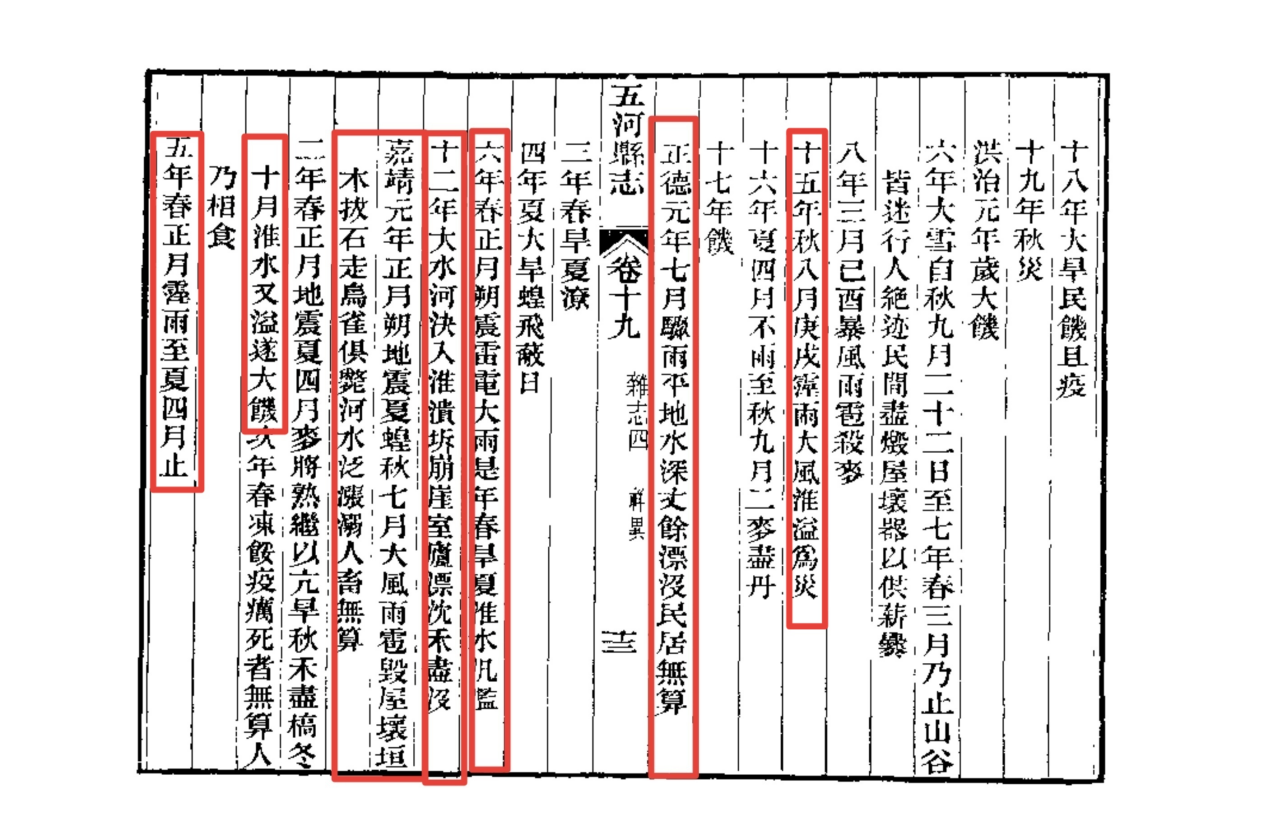 十八年大旱民饑且疫
十九年秋災
洪治元年歲大饑
六年大雪自秋九月二十二日至七年春三月乃止山谷
皆迷行人絶迹民間盡燬屋壞器以供薪爨
八年三月己酉暴風雨雹殺麥
十五年秋八月庚戌霪雨大風淮溢爲災
十六年夏四月不雨至秋九月二麥盡丹
十七年饑
正德元年七月驟雨平地水深丈餘漂没民居無算
五河縣志
卷十九
雜志四 祥異
十三
三年春旱夏潦
四年夏大旱蝗飛蔽日
六年春正月朔震雷電大雨是年春旱夏淮水汎濫
十二年大水河決入淮潰坼崩崖室廬漂沈禾盡没
嘉靖元年正月朔地震夏蝗秋七月大風雨雹毀屋壞垣
木拔石走鳥雀俱斃河水泛漲溺人畜無算
二年春正月地震夏四月麥將熟繼以亢旱秋禾盡槁冬
十月淮水又溢遂大饑次年春凍餒疫癘死者無算人
乃相食
五年春正月霪雨至夏四月止